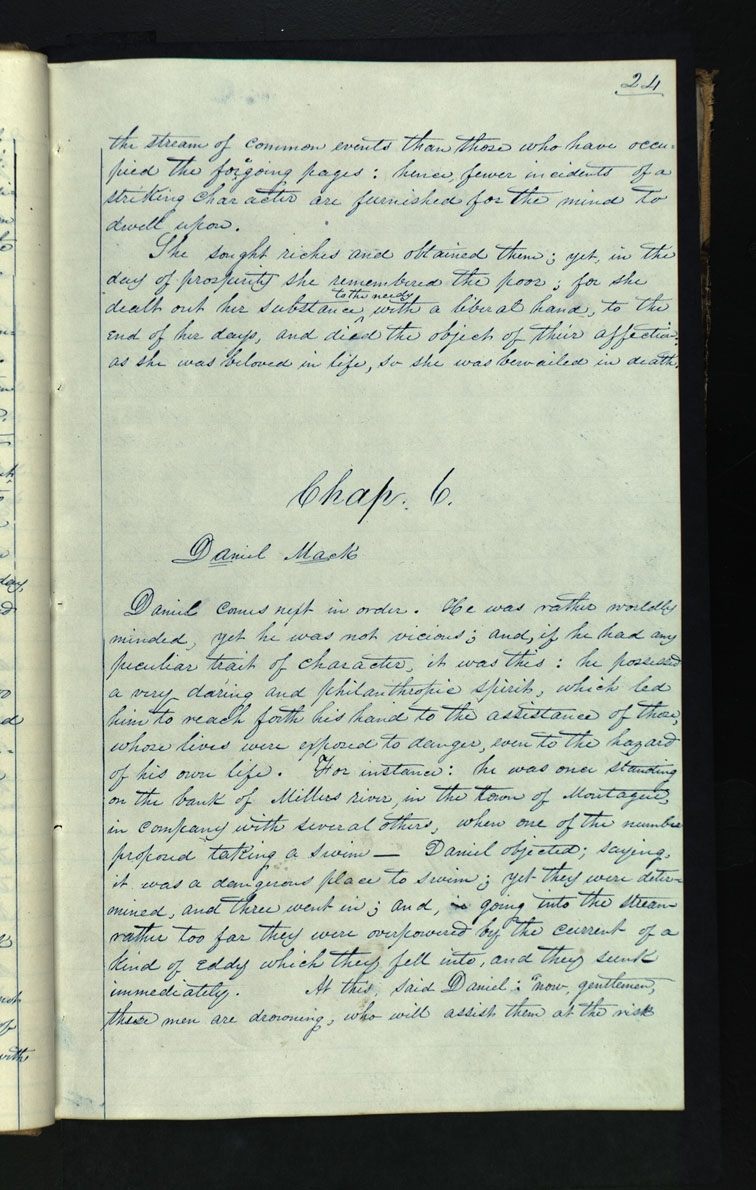 24
the stream of common events than those who have occu-
pied the forgoing pages: hence, fewer incidents of a
striking character are furnished for the mind to
dwell upon.
She sought riches and obtained them; yet, in the
day of prosperity she remembered the poor; for she
to the needy
dealt out her substance, with a liberal hand, to the
end of her days, and died the object of their affection:
as she was beloved in life, so she was bewailed in death.
Chap. 6.
Daniel Mack
Daniel comes next in order. He was rather worldly
minded, yet he was not vicious; and, if he had any
peculiar trait of character, it was this: he possessed
a very daring and philanthropic spirit, which led
him to reach forth his hand to the assistance of those,
whose lives were exposed to danger, even to the hazard
of his own life. For instance: he was once standing
on the bank of Millers river, in the town of Montague,
in company with several others, when one of the number
proposed taking a swim — Daniel objected; saying,
it was a dangerous place to swim; yet they were deter-
mined, and three went in; and, going into the stream
rather too far they were overpowered by the current of a
kind of Eddy which they fell into, and they sunk
immediately. At this, said Daniel: "now, gentlemen,
these men are drowning, who will assist them at the risk
day,
and
d
of
with